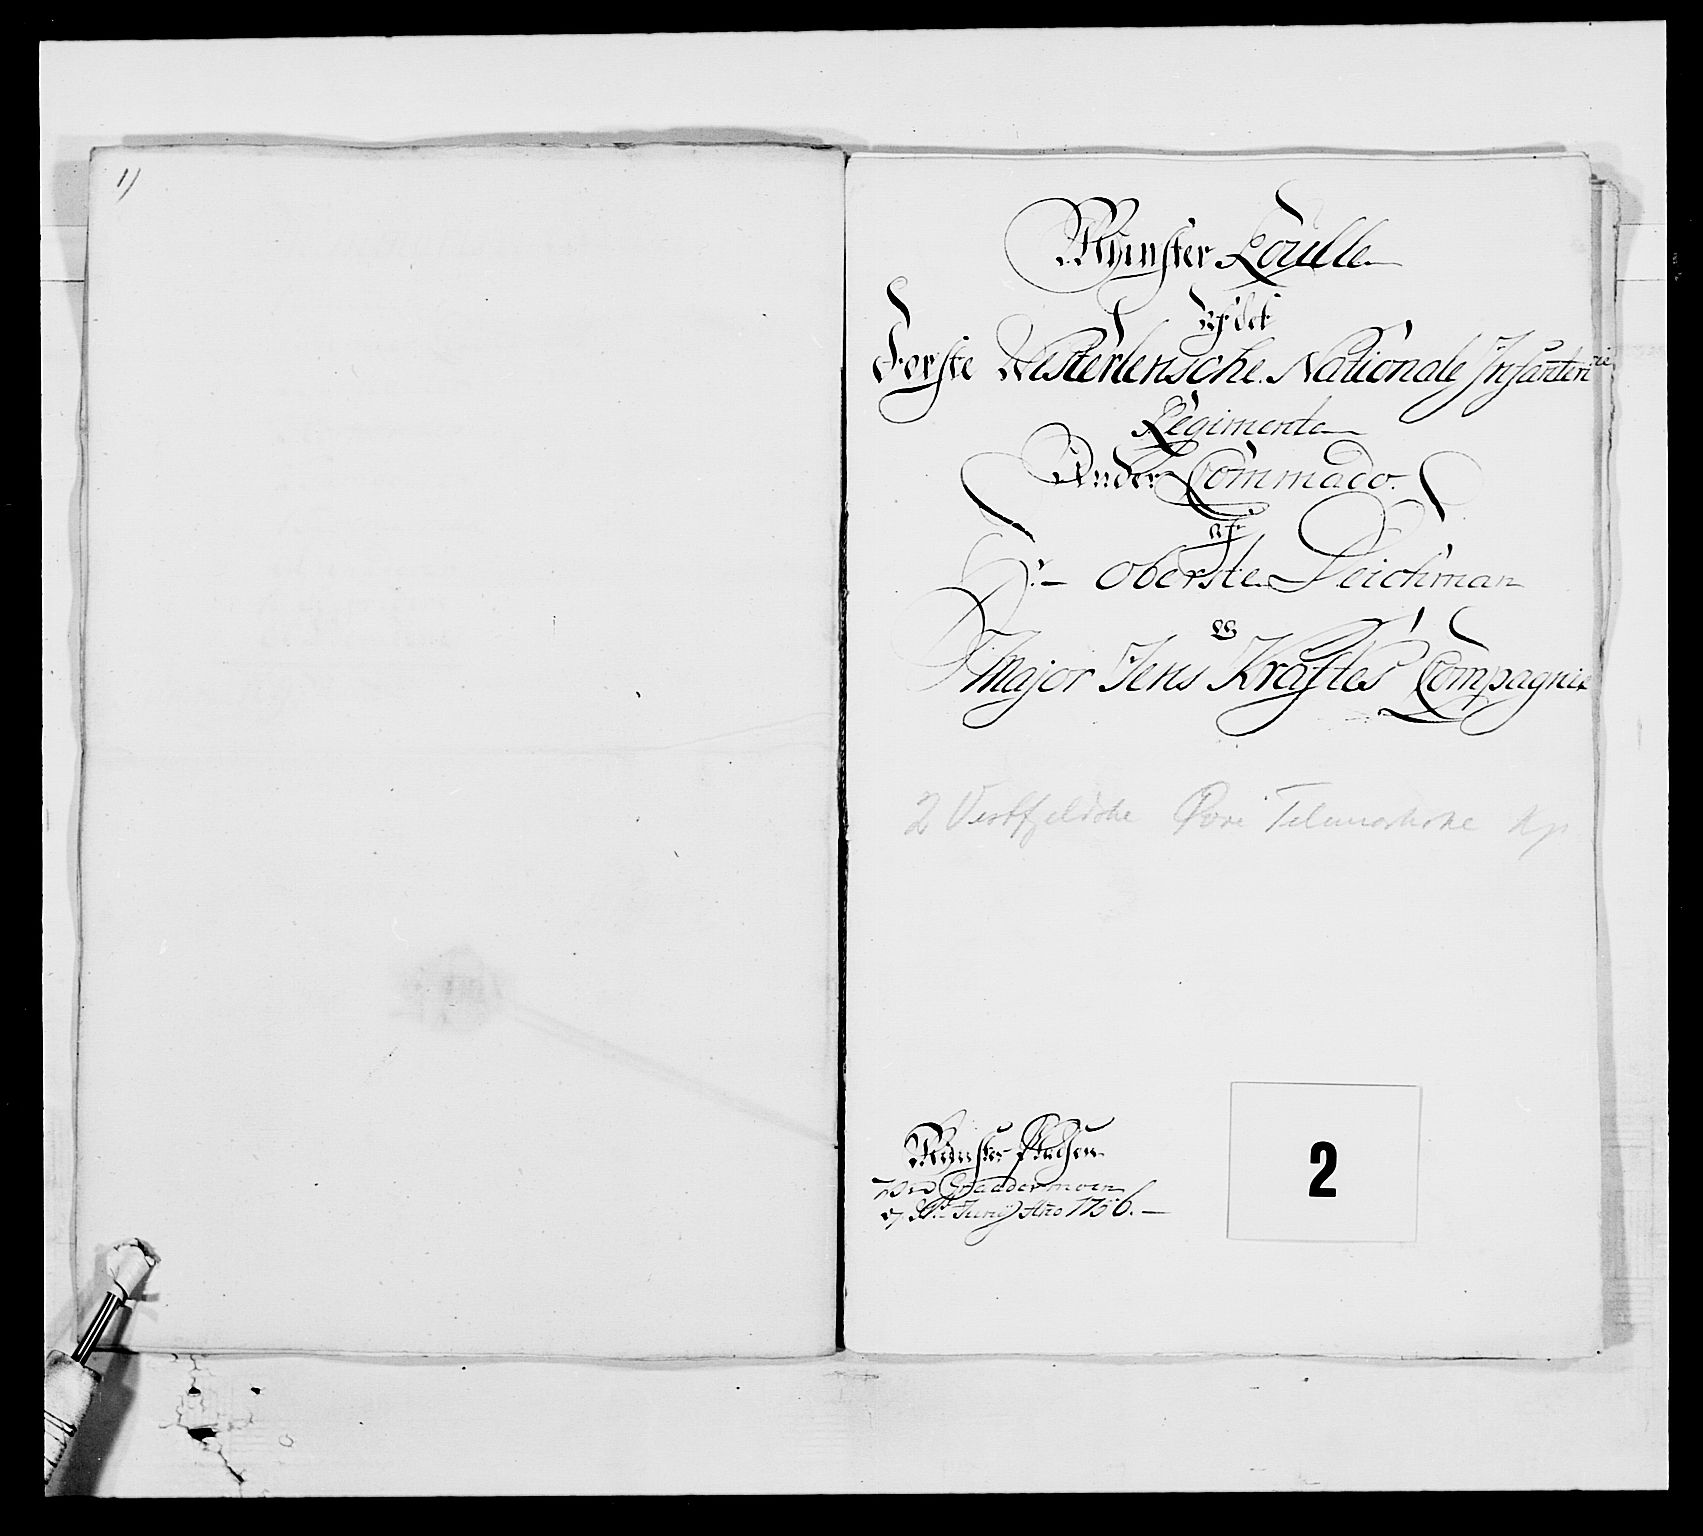 1)
Mynster Roulle
Af det
Første Westerlensche Nationale Infanterie
Regimente
Under Commado
af
Hr. Oberste Deichman
og
Major Jens Kraftes Compagnie
2 Vestfjeldske Øvre Telemarkske Kp
Mynster Pladsen
Ved
Junij Ano 1756.
2